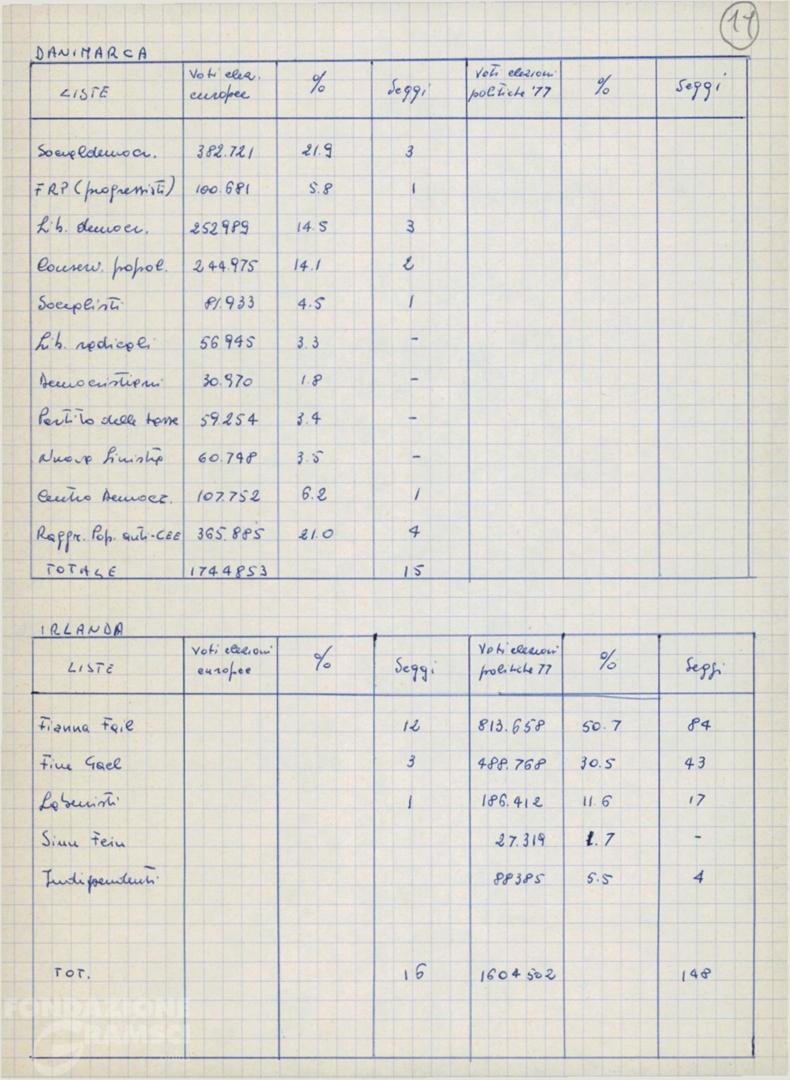 11
DANIMARCA
LISTE Voti elez. europee % Seggi Voti elezioni politiche '77 % Seggi
Socialdemocr. 382.721 21.9 3
FRP (progressisti) 100.681 5.8 1
Lib. democr. 252989 14.5 3
Conserv. popol. 244.975 14.1 2
Socialisti 81.933 4.5 1
Lib. radicali 56945 3.3 -
Democristiani 30.970 1.8 -
Partito delle tasse 59.254 3.4 -
Nuova Sinistra 60.748 3.5 -
Centro Democr. 107.752 6.2 1
Raggr. Pop. anti-CEE 365.885 21.0 4
TOTALE 1744853 15
IRLANDA
LISTE Voti elezioni europee % Seggi Voti elezioni politiche 77 % Seggi
Fianna Fail 12 813.658 50.7 84
Fine Gael 3 488.768 30.5 43
Laburisti 1 186.412 11.6 17
Sinn Fein 27.319 1.7 -
Indipendenti 88385 5.5 4
TOT. 16 1604502 148
FONDAZIONE
GRAMSCI